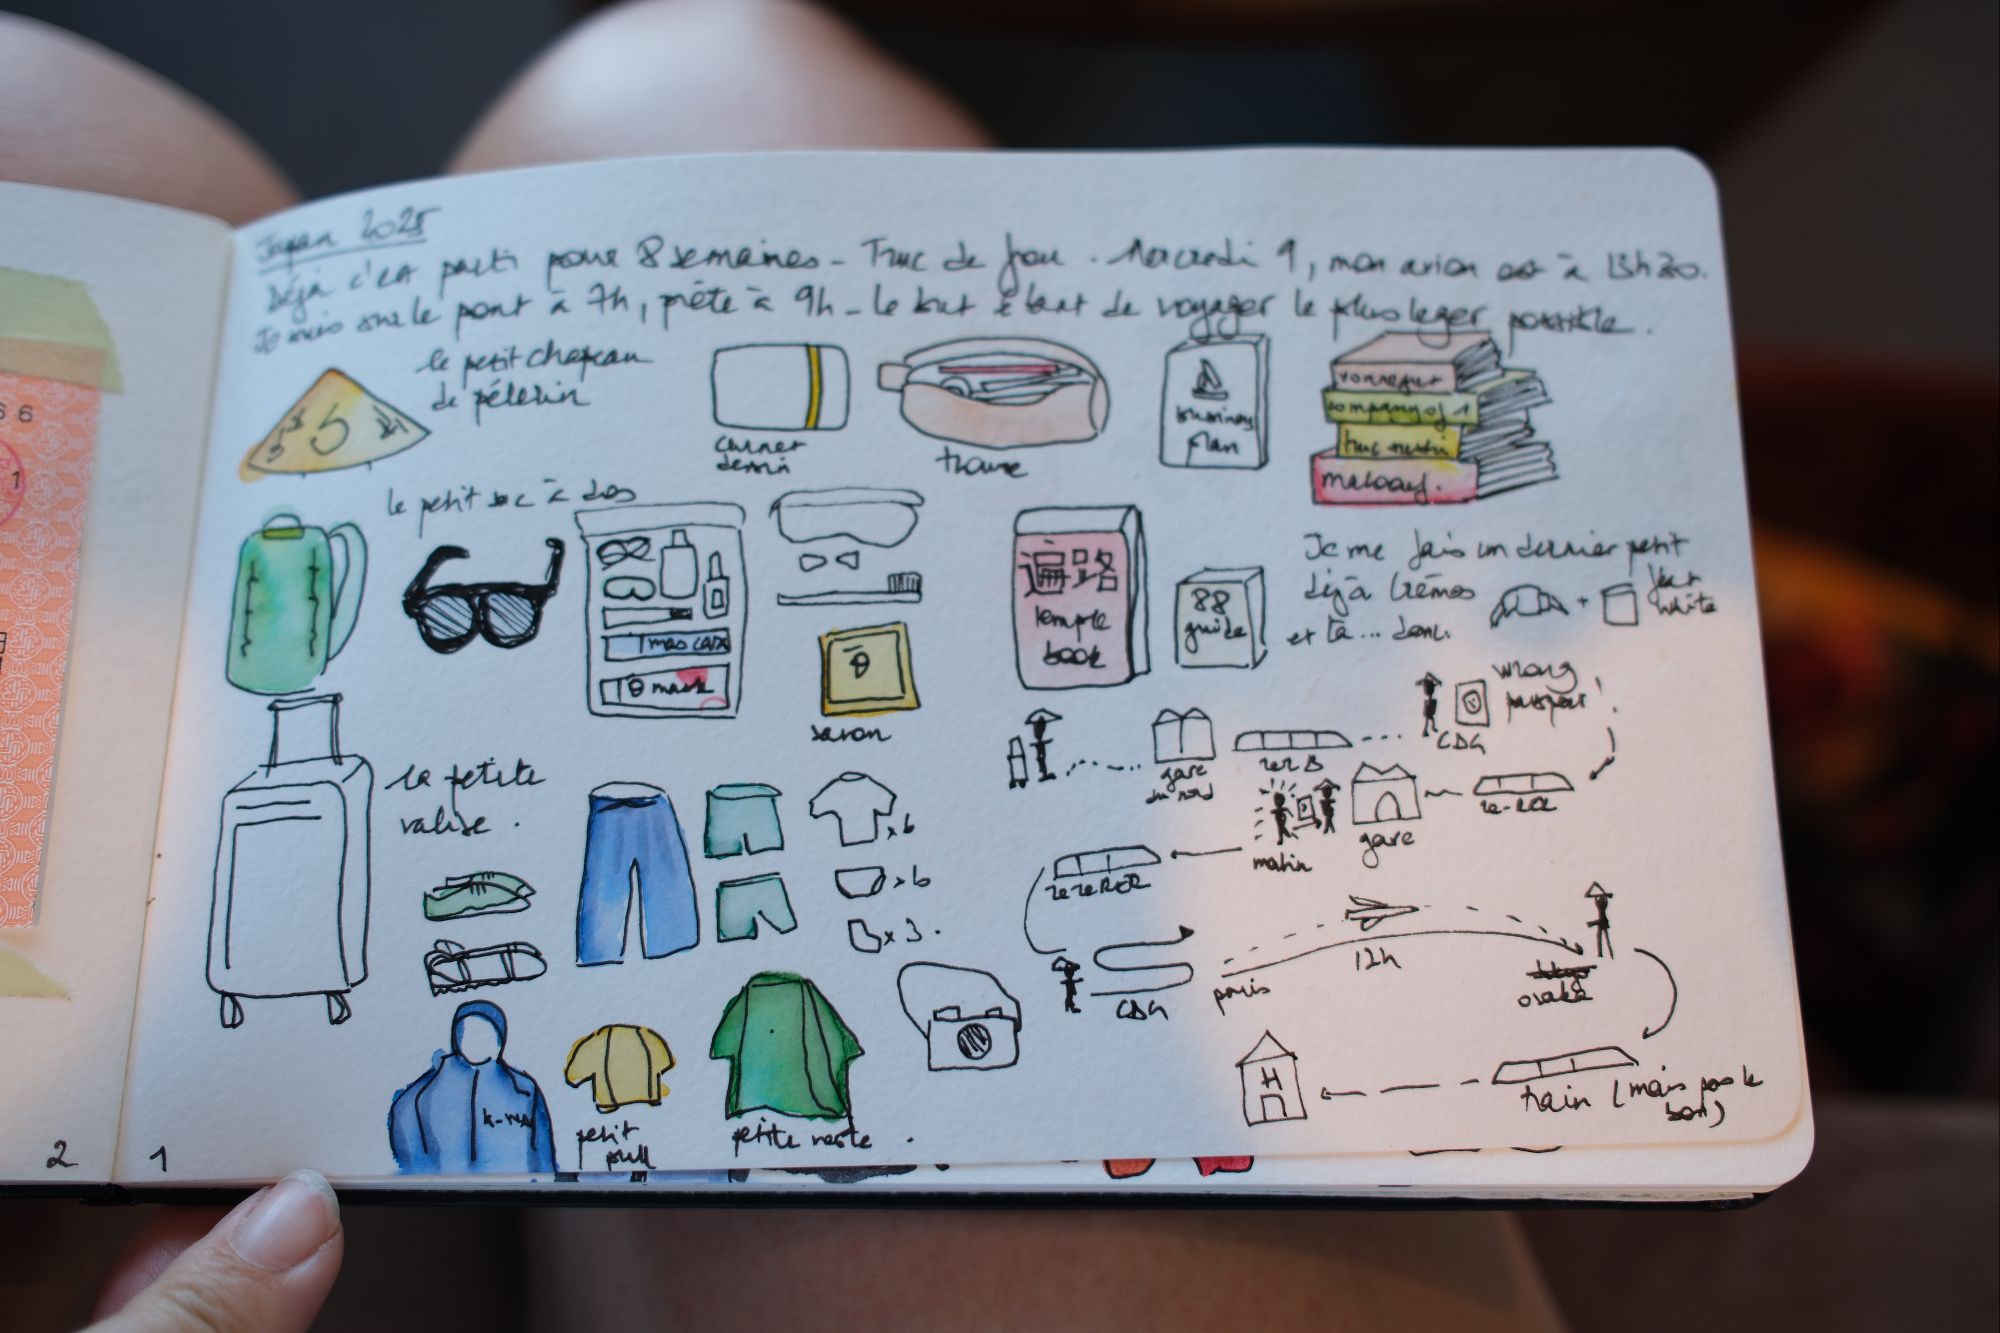 Japan 2025
Déjà c'est parti pour 8 semaines - Truc de fou. Mercredi 9, mon avion est à 13h20.
Je suis sur le pont à 7h, prête à 9h - le but étant de voyager le plus leger possible.
le petit chapeau
de pélerin
carnet
dessin
trousse
business
plan
vonnegut
company of 1
truc
le petit sac à dos
mascara
mask
savon
遍路
temple
book
88
guide
Je me fais un dernier petit
déjà crèmes
et là... donc.
+
flat
white
la petite
valise.
x6
x6
x3.
k-way
petit
pull
petite veste.
gare
du nord
rer B
CDG
wrong
passport!
re-RER
gare
matin
re re RER
CDG
paris
12h
tokyo
osaka
train (mais pas le
bon)
H
2
1
66
1